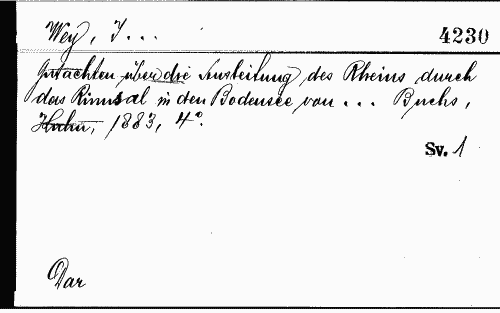 Wey, J...
4230
Gutachten über die Ausleitung des Rheins durch
das Rinnsal in den Bodensee von ... Buchs,
Kuhn, 1883, 4°.
Sv. 1
Dar